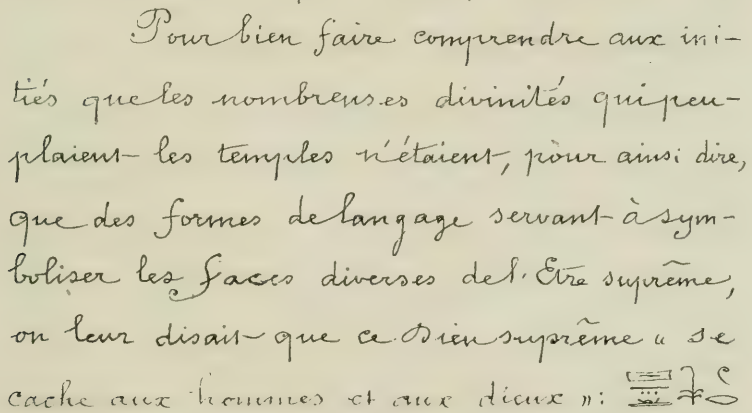 Pour bien faire comprendre aux ini-
tiés que les nombreuses divinités qui peu-
plaient les temples n'étaient, pour ainsi dire,
que des formes de langage servant à sym-
boliser les faces diverses de l'Etre suprême,
on leur disait que ce Dieu suprême « se
cache aux hommes et aux dieux »: